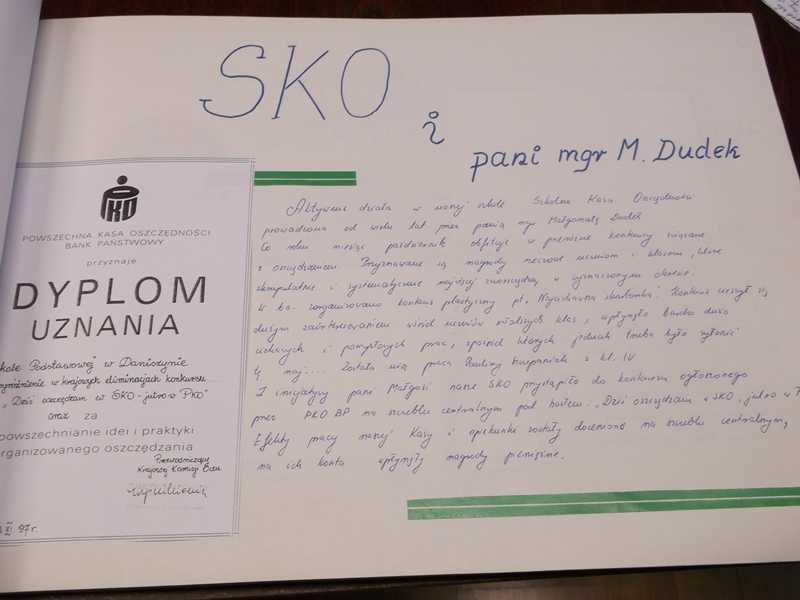 SKO
i
pani mgr M. Dudek
PKO
POWSZECHNA KASA OSZCZĘDNOŚCI
BANK PAŃSTWOWY
przyznaje
DYPLOM
UZNANIA
Podstawowej w Daniszynie
w krajowych eliminacjach konkursu
"Dziś oszczędzam w SKO - jutro w PKO"
oraz za
powszechnianie idei i praktyki
organizowanego oszczędzania
Przewodniczący
Krajowej Komisji
XI 97 r.
Aktywnie działa w naszej szkole Szkolna Kasa Oszczędności
prowadzona od wielu lat przez panią mgr Małgorzatę Dudek
Co roku miesiąc październik obfituje w przeróżne konkursy związane
z oszczędzaniem. Przyznawane są nagrody rzeczowe uczniom i klasom, które
skrupulatnie i systematycznie najwięcej zaoszczędzą w wyznaczonym okresie.
W br. zorganizowano konkurs plastyczny pt. "Wymarzona skarbonka". Konkurs cieszył się
dużym zainteresowaniem wśród uczniów młodszych klas, wpłynęło bardzo dużo
ciekawych i pomysłowych prac, spośród których jednak trzeba było wyłonić
tę naj.... Została nią praca Pauliny z kl. IV
Z inicjatywy pani Małgosi nasze SKO przystąpiło do konkursu ogłoszonego
przez PKO BP na szczeblu centralnym pod hasłem: "Dziś oszczędzam w SKO, jutro w P
Efekty pracy naszej Kasy i opiekunki zostały docenione na szczeblu centralnym,
na ich konto wpłynęły nagrody pieniężne.